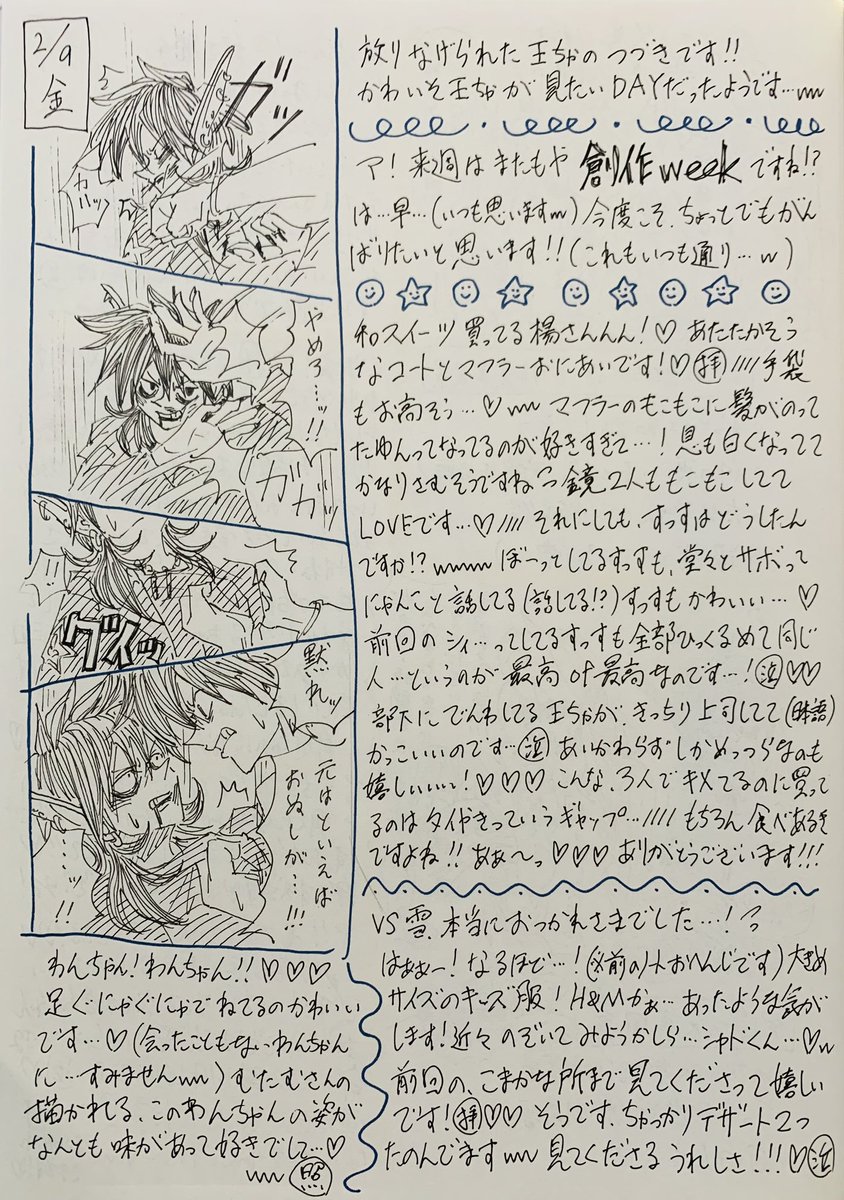 2/9
金
ガッ
カハッ
やめろ…ッ!!
ガガッ
グイッ
黙れッ
元はといえば
おぬしが…!!!
…ッ!!
放りなげられた王ちゃのつづきです!!
かわいそ王ちゃが見たいDAYだったようです…wwww
ア!来週はまたもや創作weekですね!?
は…早…(いつも思いますw)今度こそ、ちょっとでもがん
ばりたいと思います!!(これもいつも通り…w)
和スイーツ買ってる楊さんんん!♡あたたかそう
なコートとマフラーおにあいです!♡(拝)////手袋
もお高そう…♡wwマフラーのもこもこに髪がのって
たゆんってなってるのが好きすぎて…!息も白くなってて
かなりさむそうですね 鏡2人ももこもこしてて
LOVEです…♡////それにしても、すっすはどうしたん
ですか!?wwwwぼーっとしてるすっすも、堂々とサボって
にゃんこと話してる(話してる!?)すっすもかわいい…♡
前回のシィ…ってしてるすっすも全部ひっくるめて同じ
人…というのが最高of最高なのです…!(泣)♡♡
部下にでんわしてる王ちゃが、きっちり上司してて(日本語)
かっこいいのです…(泣)あいかわらずしかめっつらなのも
嬉しいぃぃ!♡♡♡こんな、3人でキメてるのに買って
るのはタイやきっていうギャップ…////もちろん食べあるき
ですよね!!あぁ〜っ♡♡♡ありがとうございます!!!
VS雪、本当におつかれさまでした…!
はぁぁー!なるほど…! 大きめ
サイズのキッズ服!H&Mかぁ…あったような気が
します!近々のぞいてみようかしら…シャドくん…♡w
前回の、こまかな所まで見てくださって嬉しい
です!(拝)♡♡そうです、ちゃっかりデザート2つ
たのんでますwww見てくださるうれしさ!!!♡(泣)
わんちゃん!わんちゃん!!♡♡♡
足ぐにゃぐにゃでねてるのかわいい
です…♡(会ったこともないわんちゃん
に…すみませんww)むたむさんの
描かれる、このわんちゃんの姿が
なんとも味があって好きでして…♡
www(照)